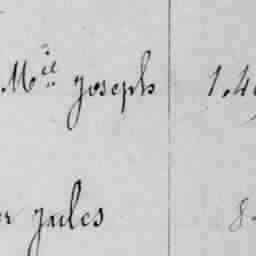 Mel Joseph 1.4
Jules 8